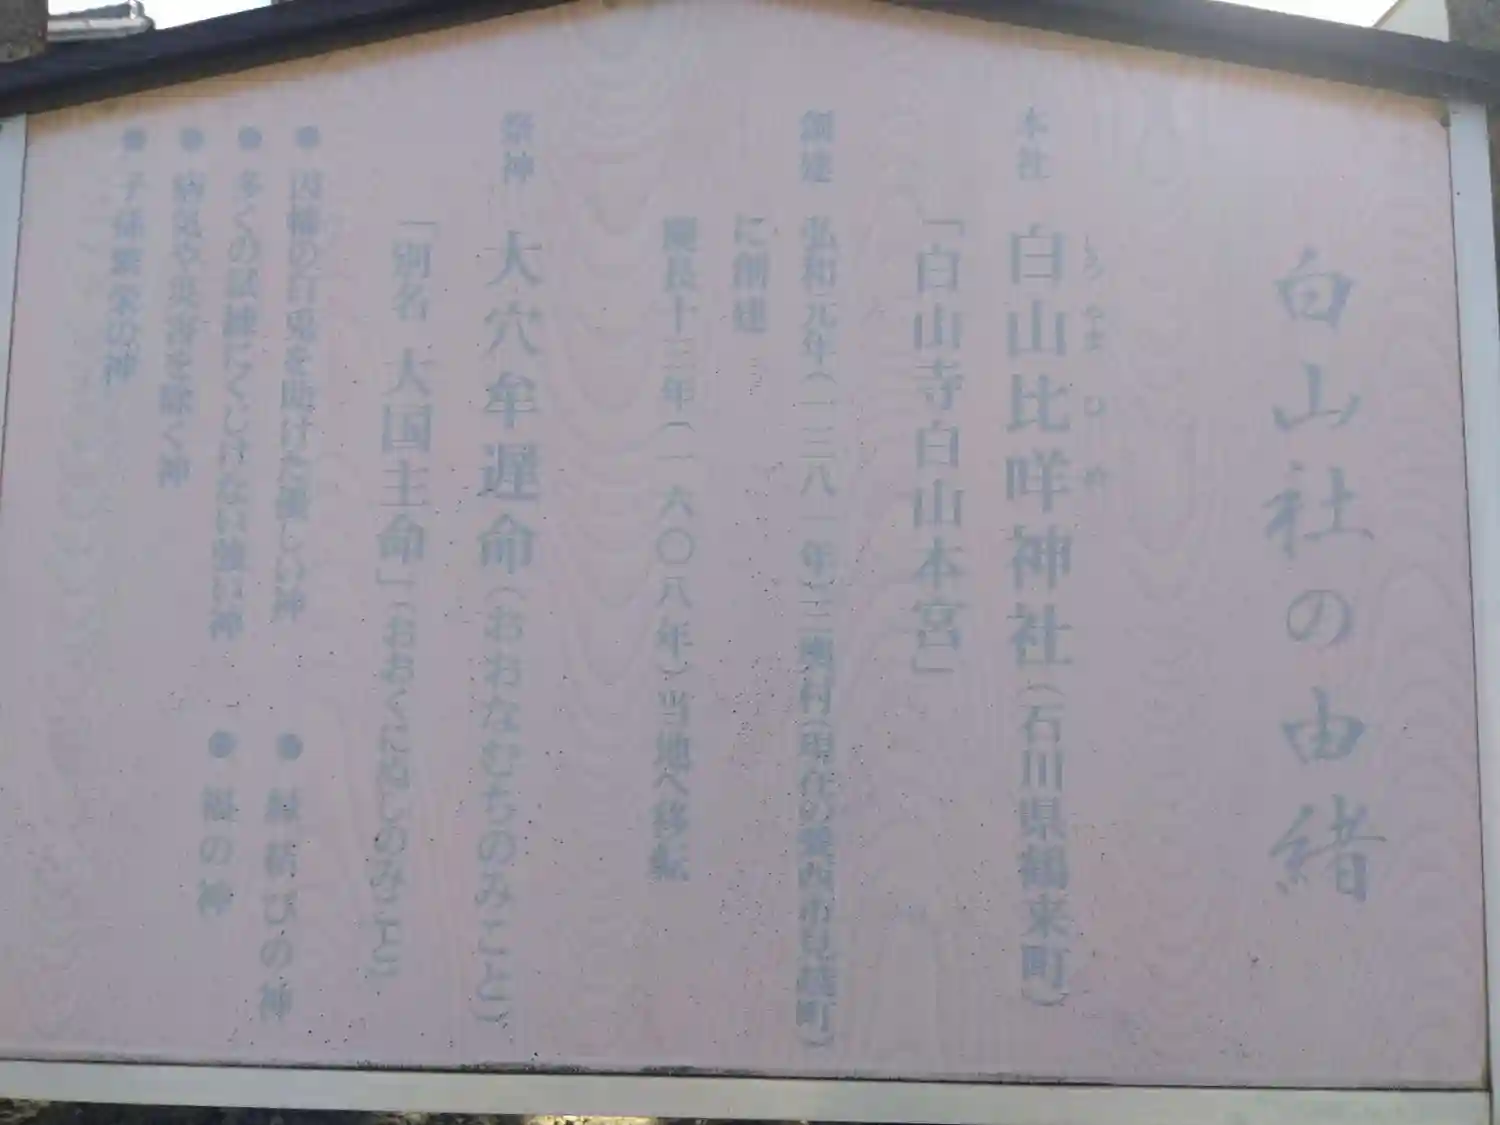 白山社の由緒
本社 白山比咩神社(石川県鶴来町)
しらやまひめ
「白山寺白山本宮」
創建 弘和元年(一三八一年)三奥村(現在の愛西市見越町)
に創建
慶長十三年(一六〇八年)当地へ移転
祭神 大穴牟遅命(おおなむちのみこと)
「別名 大国主命」(おおくにぬしのみこと)
● 因幡の白兎を助けた優しい神 ● 縁結びの神
● 多くの試練にくじけない強い神 ● 福の神
● 病気や災害を除く神
● 子孫繁栄の神